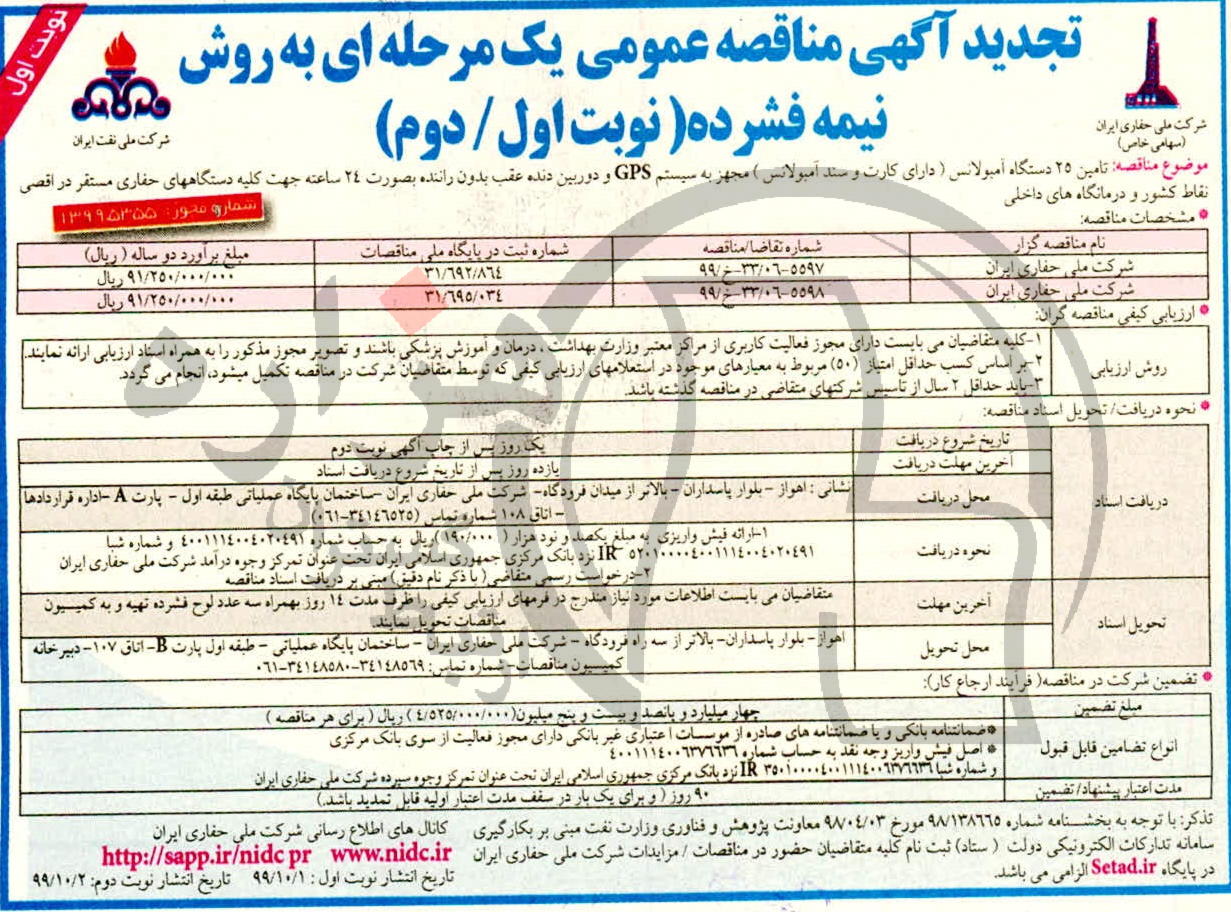 نوبت اول
تجدید آگهی مناقصه عمومی یک مرحله ای به روش
نیمه فشرده( نوبت اول / دوم)
شرکت ملی نفت ایران
شرکت ملی حفاری ایران
(سهامی خاص)
موضوع مناقصه: تامین ۲۵ دستگاه آمبولانس ( دارای کارت و سند آمبولانس ) مجهز به سیستم GPS و دوربین دنده عقب بدون راننده بصورت ۲۴ ساعته جهت کلیه دستگاههای حفاری مستقر در اقصی
نقاط کشور و درمانگاه های داخلی
شماره مجوز: ۱۳۹۹.۵۳۵۵
* مشخصات مناقصه:
نام مناقصه گزار شماره تقاضا/مناقصه شماره ثبت در پایگاه ملی مناقصات مبلغ برآورد دو ساله ( ریال)
شرکت ملی حفاری ایران ۵۵۹۷-۳۳/۰۶-خ/۹۹ ۳۱/۶۹۲/۸۶۴ ۹۱/۲۵۰/۰۰۰/۰۰۰ ریال
شرکت ملی حفاری ایران ۵۵۹۸-۳۳/۰۶-خ/۹۹ ۳۱/۶۹۵/۰۳۴ ۹۱/۲۵۰/۰۰۰/۰۰۰ ریال
* ارزیابی کیفی مناقصه گران:
روش ارزیابی
۱-کلیه متقاضیان می بایست دارای مجوز فعالیت کاربری از مراکز معتبر وزارت بهداشت ، درمان و آموزش پزشکی باشند و تصویر مجوز مذکور را به همراه اسناد ارزیابی ارائه نمایند.
۲-بر اساس کسب حداقل امتیاز (۵۰) مربوط به معیارهای موجود در استعلامهای ارزیابی کیفی که توسط متقاضیان شرکت در مناقصه تکمیل میشود، انجام می گردد.
۳-باید حداقل ۲ سال از تاسیس شرکتهای متقاضی در مناقصه گذشته باشد.
* نحوه دریافت/ تحویل اسناد مناقصه:
دریافت اسناد
تاریخ شروع دریافت یک روز پس از چاپ آگهی نوبت دوم
آخرین مهلت دریافت یازده روز پس از تاریخ شروع دریافت اسناد
محل دریافت نشانی : اهواز - بلوار پاسداران - بالاتر از میدان فرودگاه- شرکت ملی حفاری ایران -ساختمان پایگاه عملیاتی طبقه اول - پارت A -اداره قراردادها
- اتاق ۱۰۸ شماره تماس (۳۴۱۴۶۵۲۵-۰۶۱)
نحوه دریافت ۱-ارائه فیش واریزی به مبلغ یکصد و نود هزار ( ۱۹۰/۰۰۰ )ریال به حساب شماره ۴۰۰۱۱۱۴۰۰۴۰۲۰۴۹۱ و شماره شبا
IR ۵۲۰۱۰۰۰۰۴۰۰۱۱۱۴۰۰۴۰۲۰۴۹۱ نزد بانک مرکزی جمهوری اسلامی ایران تحت عنوان تمرکز وجوه درآمد شرکت ملی حفاری ایران
۲-درخواست رسمی متقاضی( با ذکر نام دقیق) مبنی بر دریافت اسناد مناقصه
تحویل اسناد
آخرین مهلت متقاضیان می بایست اطلاعات مورد نیاز مندرج در فرمهای ارزیابی کیفی را ظرف مدت ۱۴ روز بهمراه سه عدد لوح فشرده تهیه و به کمیسیون
مناقصات تحویل نمایند
محل تحویل اهواز- بلوار پاسداران- بالاتر از سه راه فرودگاه - شرکت ملی حفاری ایران - ساختمان پایگاه عملیاتی - طبقه اول پارت B- اتاق ۱۰۷- دبیرخانه
کمیسیون مناقصات- شماره تماس: ۳۴۱۴۸۵۶۹-۳۴۱۴۸۵۸۰-۰۶۱
* تضمین شرکت در مناقصه( فرآیند ارجاع کار):
مبلغ تضمین چهار میلیارد و پانصد و بیست و پنج میلیون(۴/۵۲۵/۰۰۰/۰۰۰ ) ریال ( برای هر مناقصه )
انواع تضامین قابل قبول *ضمانتنامه بانکی و یا ضمانتنامه های صادره از موسسات اعتباری غیر بانکی دارای مجوز فعالیت از سوی بانک مرکزی
* اصل فیش واریز وجه نقد به حساب شماره ۴۰۰۱۱۱۴۰۰۶۳۷۶۶۳۶
و شماره شبا IR ۳۵۰۱۰۰۰۰۴۰۰۱۱۱۴۰۰۶۳۷۶۶۳۶ نزد بانک مرکزی جمهوری اسلامی ایران تحت عنوان تمرکز وجوه سپرده شرکت ملی حفاری ایران
مدت اعتبار پیشنهاد/ تضمین ۹۰ روز ( و برای یک بار در سقف مدت اعتبار اولیه قابل تمدید باشد.)
تذکر: با توجه به بخشنامه شماره ۹۸/۱۳۸۶۶۵ مورخ ۹۸/۰۴/۰۳ معاونت پژوهش و فناوری وزارت نفت مبنی بر بکارگیری
سامانه تدارکات الکترونیکی دولت ( ستاد) ثبت نام کلیه متقاضیان حضور در مناقصات / مزایدات شرکت ملی حفاری ایران
در پایگاه Setad.ir الزامی می باشد.
کانال های اطلاع رسانی شرکت ملی حفاری ایران
http://sapp.ir/nidc pr www.nidc.ir
تاریخ انتشار نوبت اول : ۹۹/۱۰/۱ تاریخ انتشار نوبت دوم: ۹۹/۱۰/۲